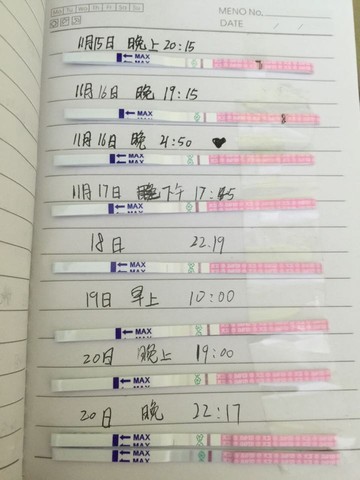 Mo Tu We Th Fr Sa Su
MEMO No.
DATE / /
11月15日 晚上 20:15
MAX
11月16日 晚 19:15
MAX
8
11月16日 晚 21:50
MAX
11月17日 下午 17:45
MAX
18日 22.19
MAX
19日 早上 10:00
MAX
20日 晚上 19:00
MAX
20日 晚 22:17
MAX
MAX